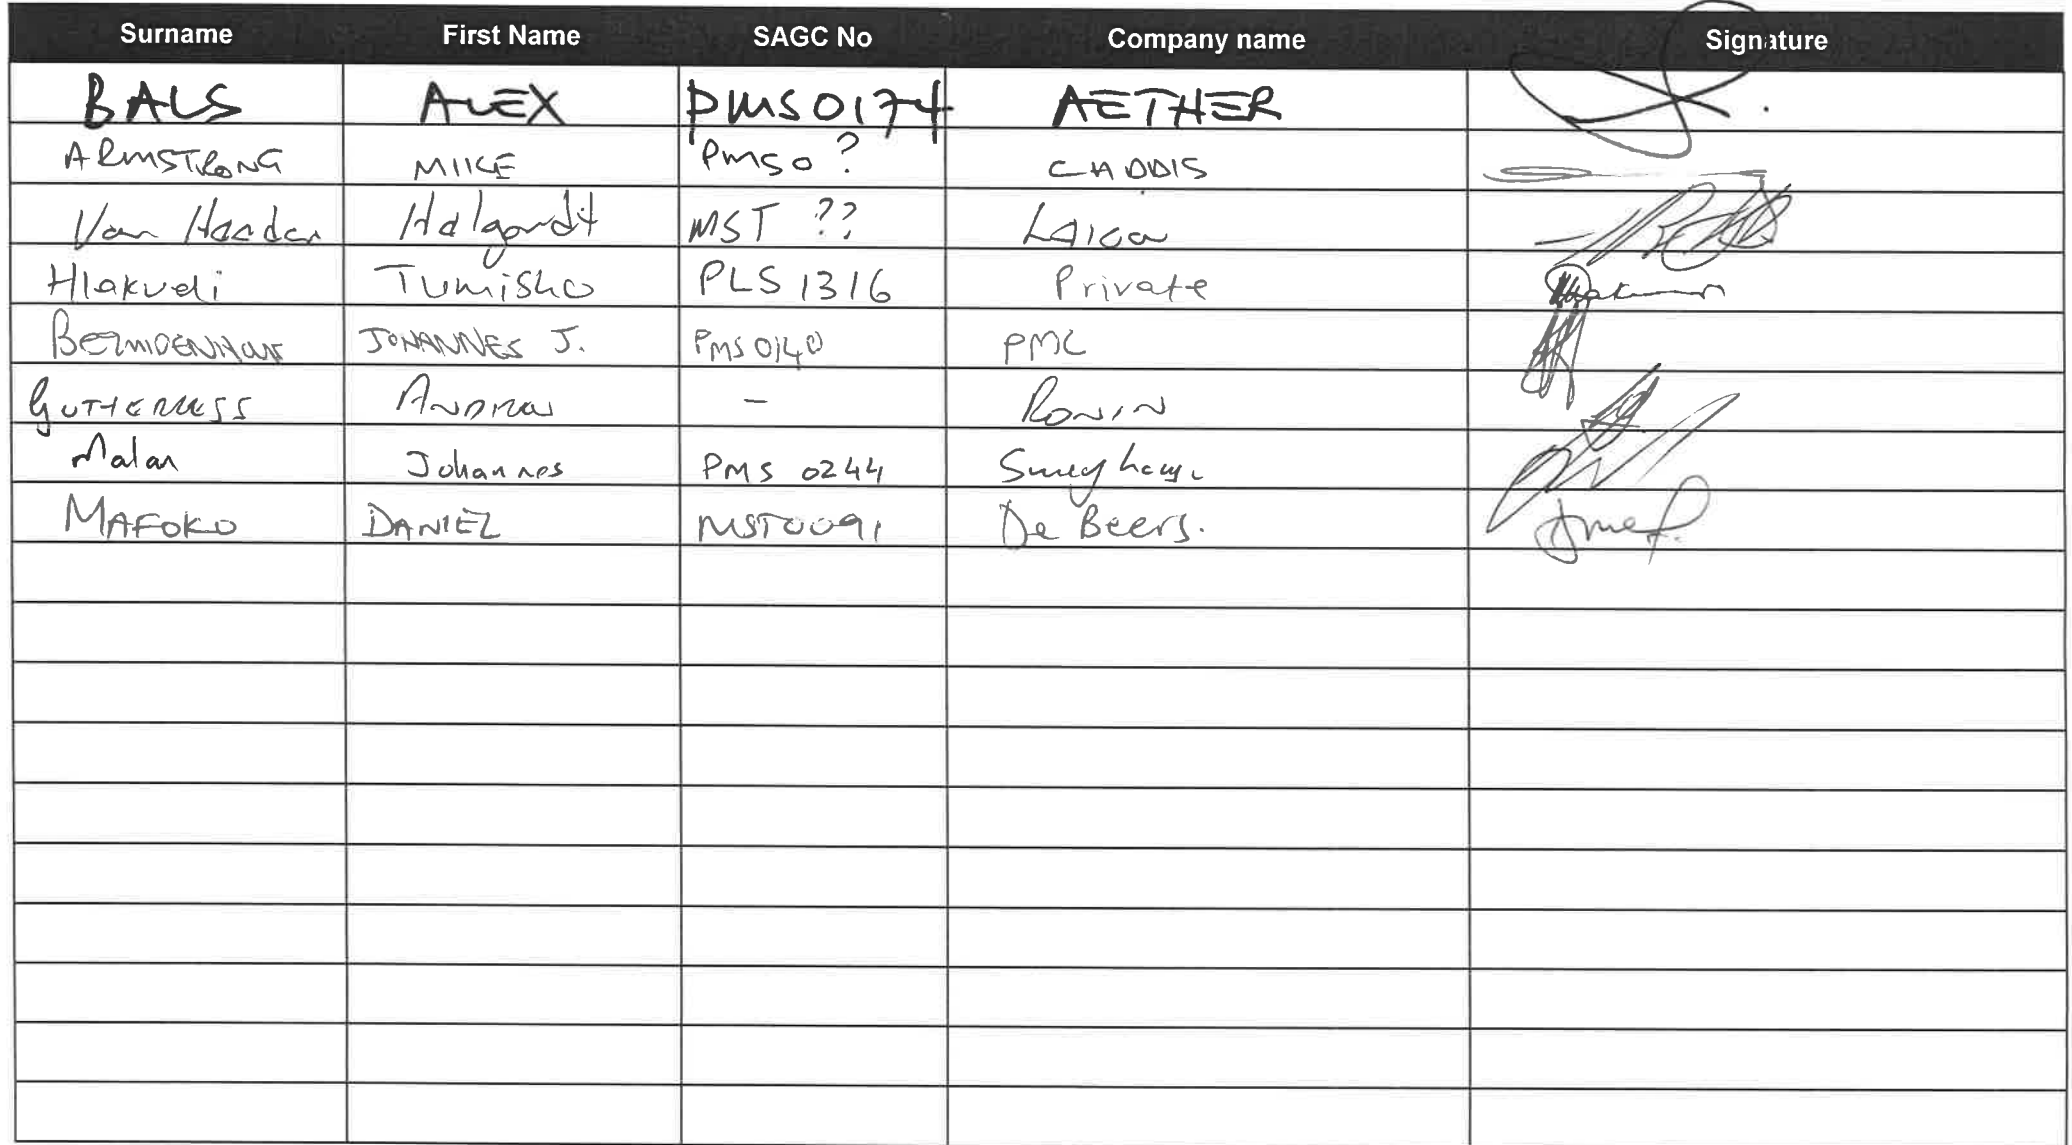 Surname First Name SAGC No Company name Signature
BALS ALEX PMS0174 AETHER
ARMSTRONG MIKE PMS0 ? CADDIS
Van Heerden Halgardt MST ??
Hlakudi Tumisho PLS 1316 Private
JOHANNES J. PMS0140 PMC
ANDREW - RONIN
Malan Johannes PMS 0244
MAFOKO DANIEL MST0091 De Beers.